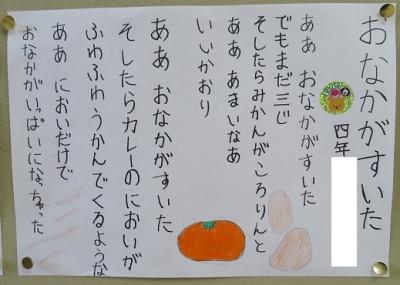 おなかがすいた
四年
ああ おなかがすいた
でもまだ三じ
そしたらみかんがころりんと
ああ あまいなあ
いいかおり
ああ おなかがすいた
そしたらカレーのにおいが
ふわふわうかんでくるような
ああ においだけで
おなかがいっぱいになっちゃった